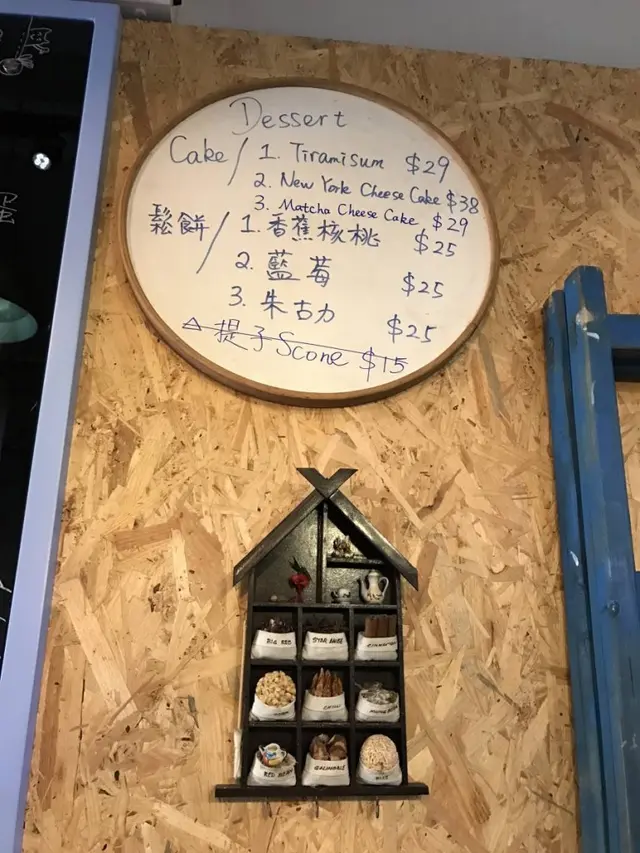 Dessert
Cake/ 1. Tiramisum $29
2. New York Cheese Cake $38
3. Matcha Cheese Cake $29
鬆餅/ 1. 香蕉核桃 $25
2. 藍莓 $25
3. 朱古力 $25
△ 提子Scone $15
STAR ANISE
CHILLI
GALINGALE
RICE